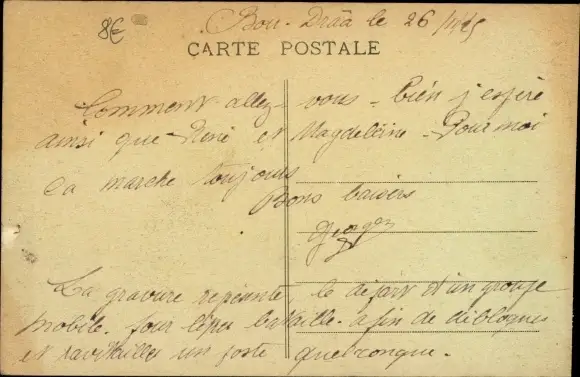 8€
Bou-Drâa le 26/
CARTE POSTALE
Comment allez-vous - bien j'espère
ainsi que René et Magdeleine - Pour moi
ça marche toujours
Bons baisers
Georges
La gravure représente, le départ d'un groupe
mobile. pour bataille. afin de débloquer
et ravitailler un poste quelconque.